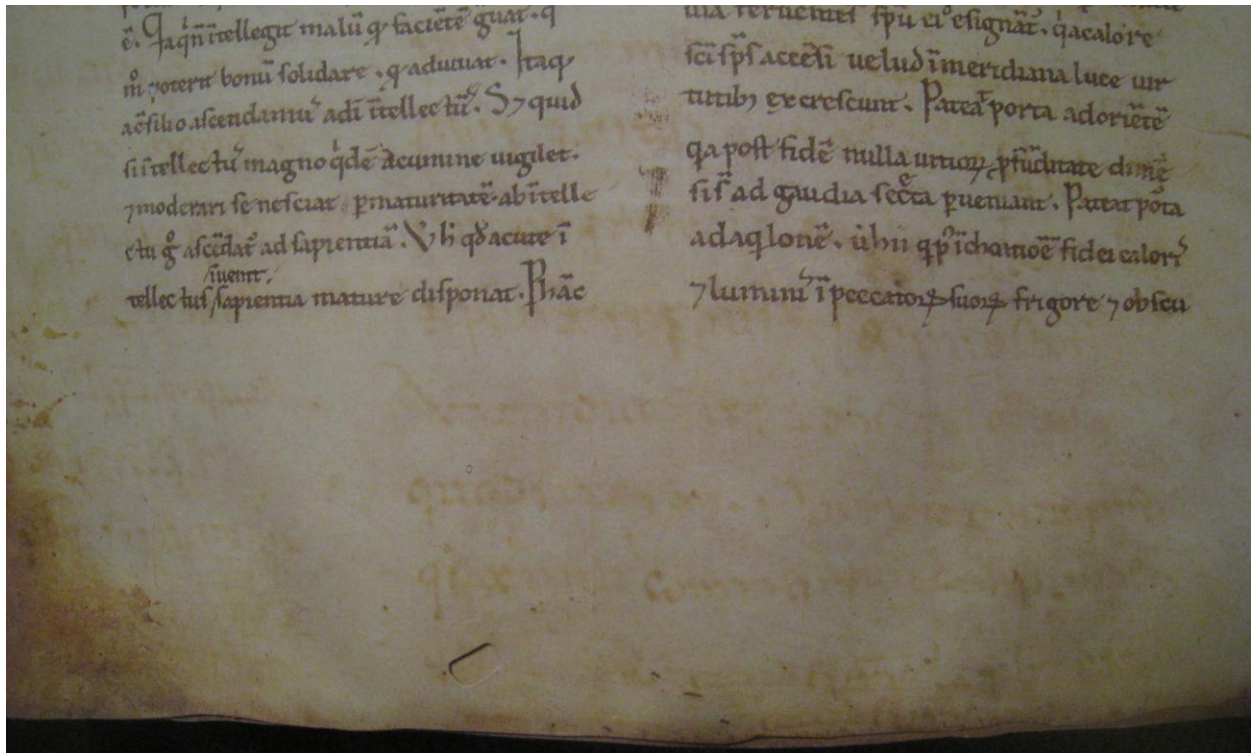 ē. Qͥa qn̄ ītellegit malū qđ faciētē ḡuat. q
m̊ poterit bonū solidare. qđ adiuuat. Itaq;
a cōsilio ascendamus ad ītellectū. S; quid
si ītellectus magno qͥdē acumine uigilet.
⁊ moderari se nesciat p maturitatē. ab ītelle
ctu g̊ ascēdat᷑ ad sapientiā. Vt h̄ qđ acute ī
iuenit
tellectus sapientia mature disponat. P hāc
uia feruentes spū ei᷒ designāt. qͥa calore
scī sp̄s accēsi uelud ī meridiana luce uir
tutib; excrescunt. Pateat porta ad oriētē
qͣ post fidē nulla uitioꝝ ꝓfūditate dimē
si s; ad gaudia sēcta ꝑueniant. Pateat poͬta
ad aqͥlonē. ut hii qͥ p̊ īchoationē fidei caloris
⁊ luminis ī peccatoꝝ suoꝝ frigore ⁊ obscu